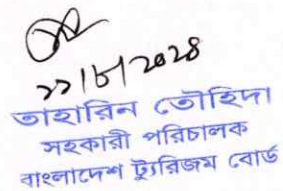 তাহারিন তৌহিদা
সহকারী পরিচালক
বাংলাদেশ ট্যুরিজম বোর্ড